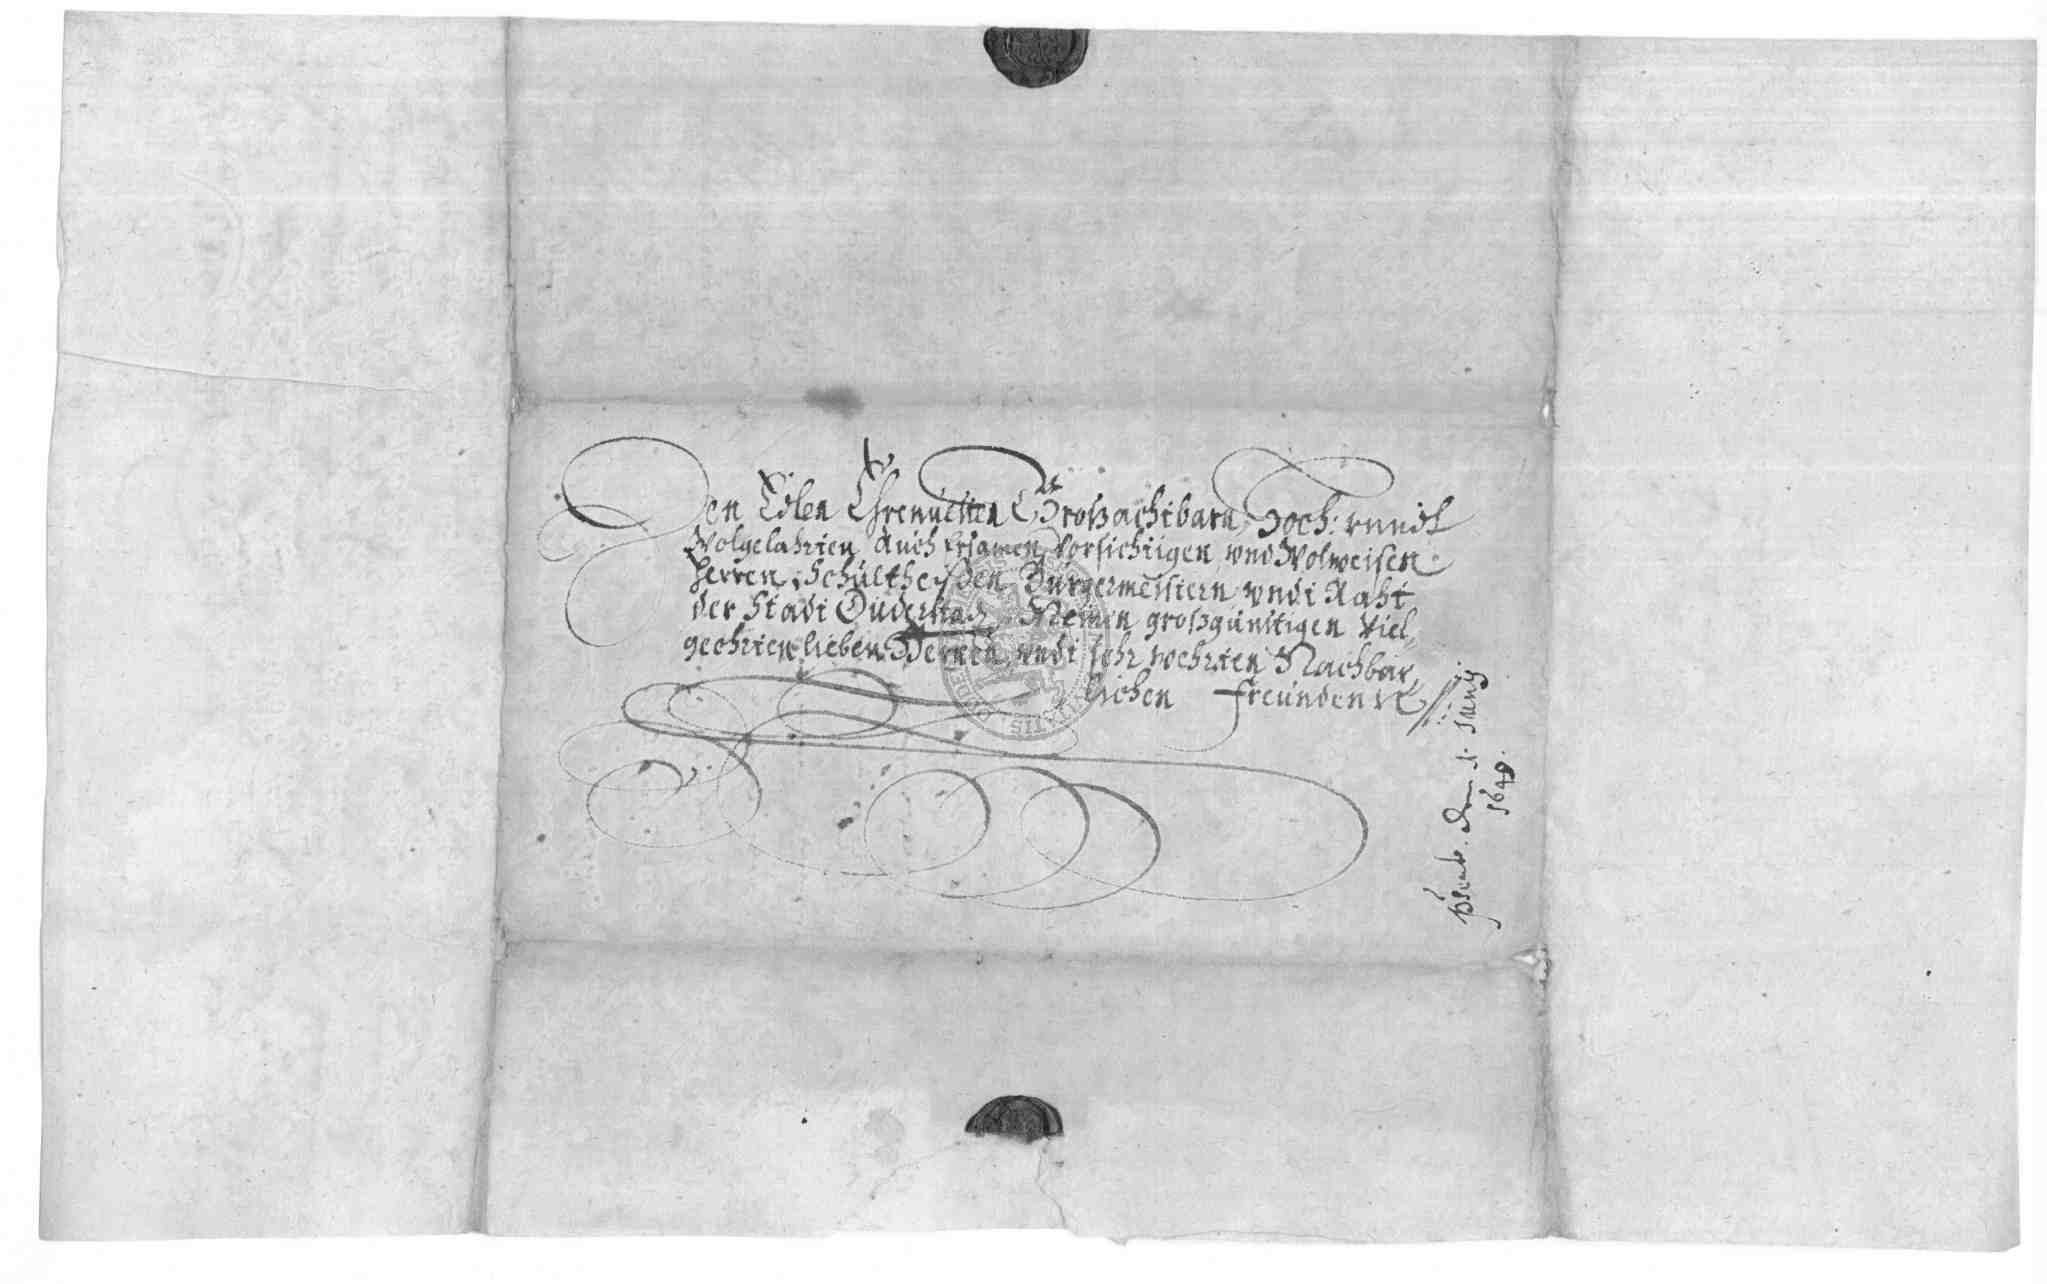 Den Edlen Ehrenuesten Großachtbarn, Hoch: vnndt
Wolgelahrten Auch Ersamen, Vorsichtigen vnd Wolweisen
Herren Schultheißen Burgermeistern vndt Raht
der Stadt Duderstadt, Meinen großgünstigen Viel-
geehrten lieben Herren, vndt sehr wehrten Nachbar,
lichen Freunden
1649.